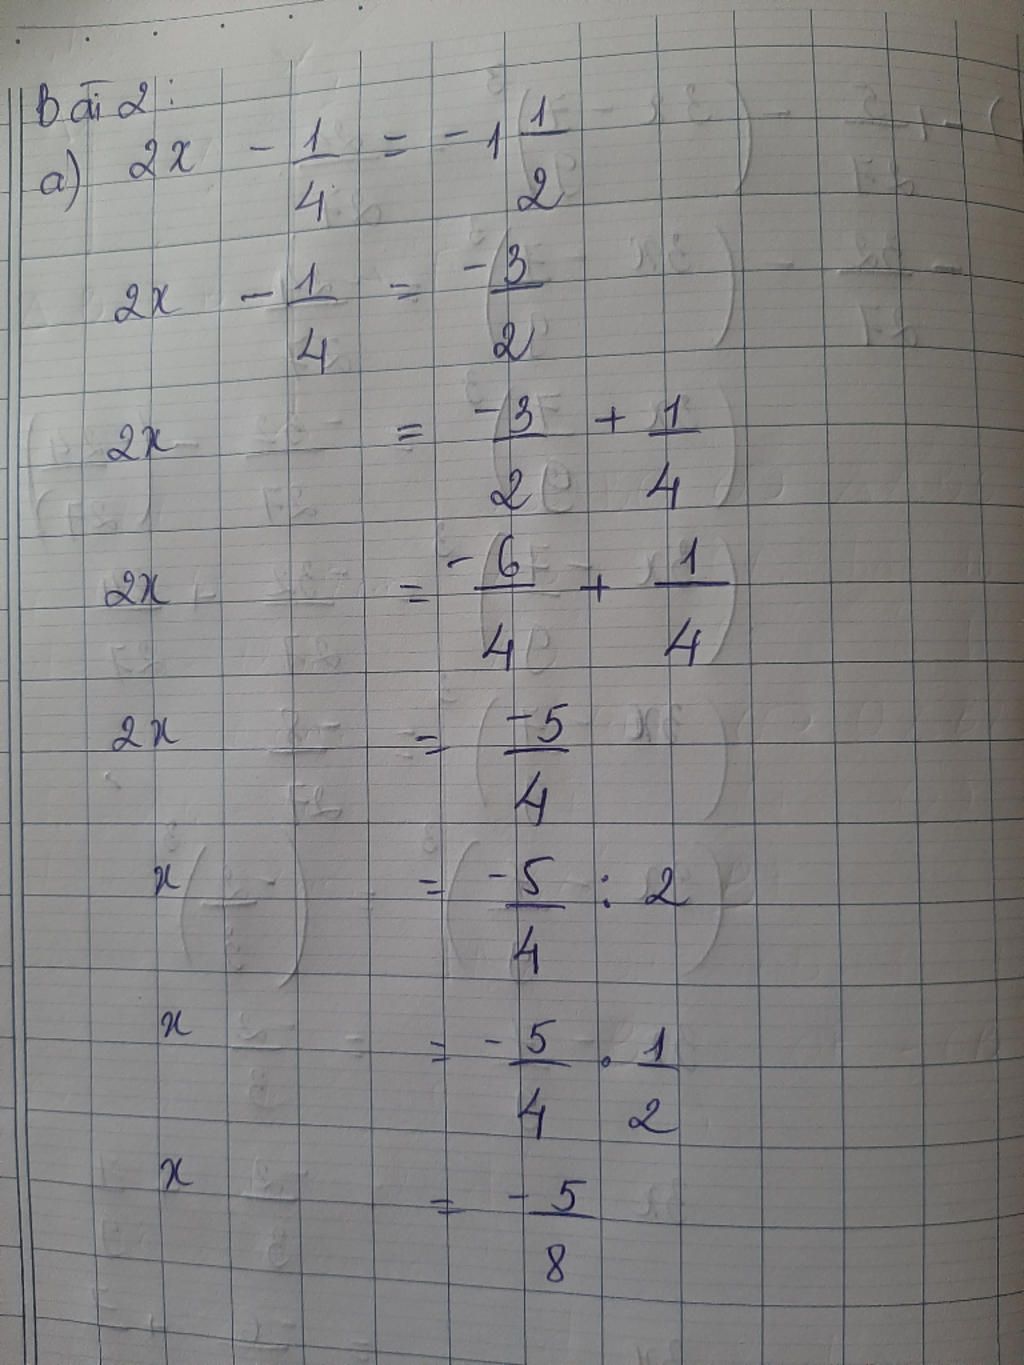 Bài 2:
a) 2x - 1/4 = -1 1/2
2x - 1/4 = -3/2
2x = -3/2 + 1/4
2x = -6/4 + 1/4
2x = -5/4
x = -5/4 : 2
x = -5/4 . 1/2
x = -5/8